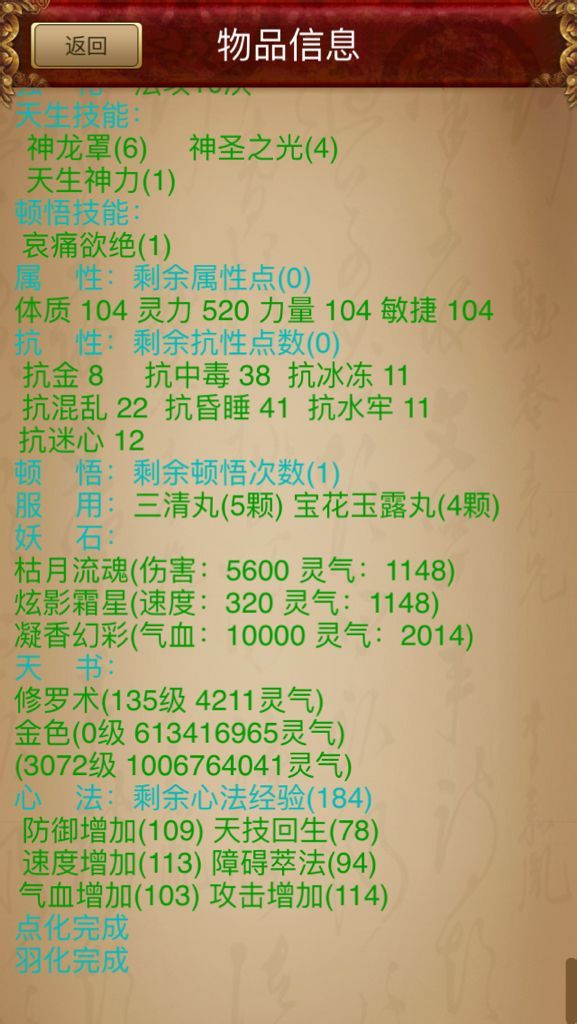 返回
物品信息
天生技能：
神龙罩(6) 神圣之光(4)
天生神力(1)
顿悟技能：
哀痛欲绝(1)
属 性：剩余属性点(0)
体质 104 灵力 520 力量 104 敏捷 104
抗 性：剩余抗性点数(0)
抗金 8 抗中毒 38 抗冰冻 11
抗混乱 22 抗昏睡 41 抗水牢 11
抗迷心 12
顿 悟：剩余顿悟次数(1)
服 用：三清丸(5颗) 宝花玉露丸(4颗)
妖 石：
枯月流魂(伤害：5600 灵气：1148)
炫影霜星(速度：320 灵气：1148)
凝香幻彩(气血：10000 灵气：2014)
天 书：
修罗术(135级 4211灵气)
金色(0级 613416965灵气)
(3072级 1006764041灵气)
心 法：剩余心法经验(184)
防御增加(109) 天技回生(78)
速度增加(113) 障碍萃法(94)
气血增加(103) 攻击增加(114)
点化完成
羽化完成